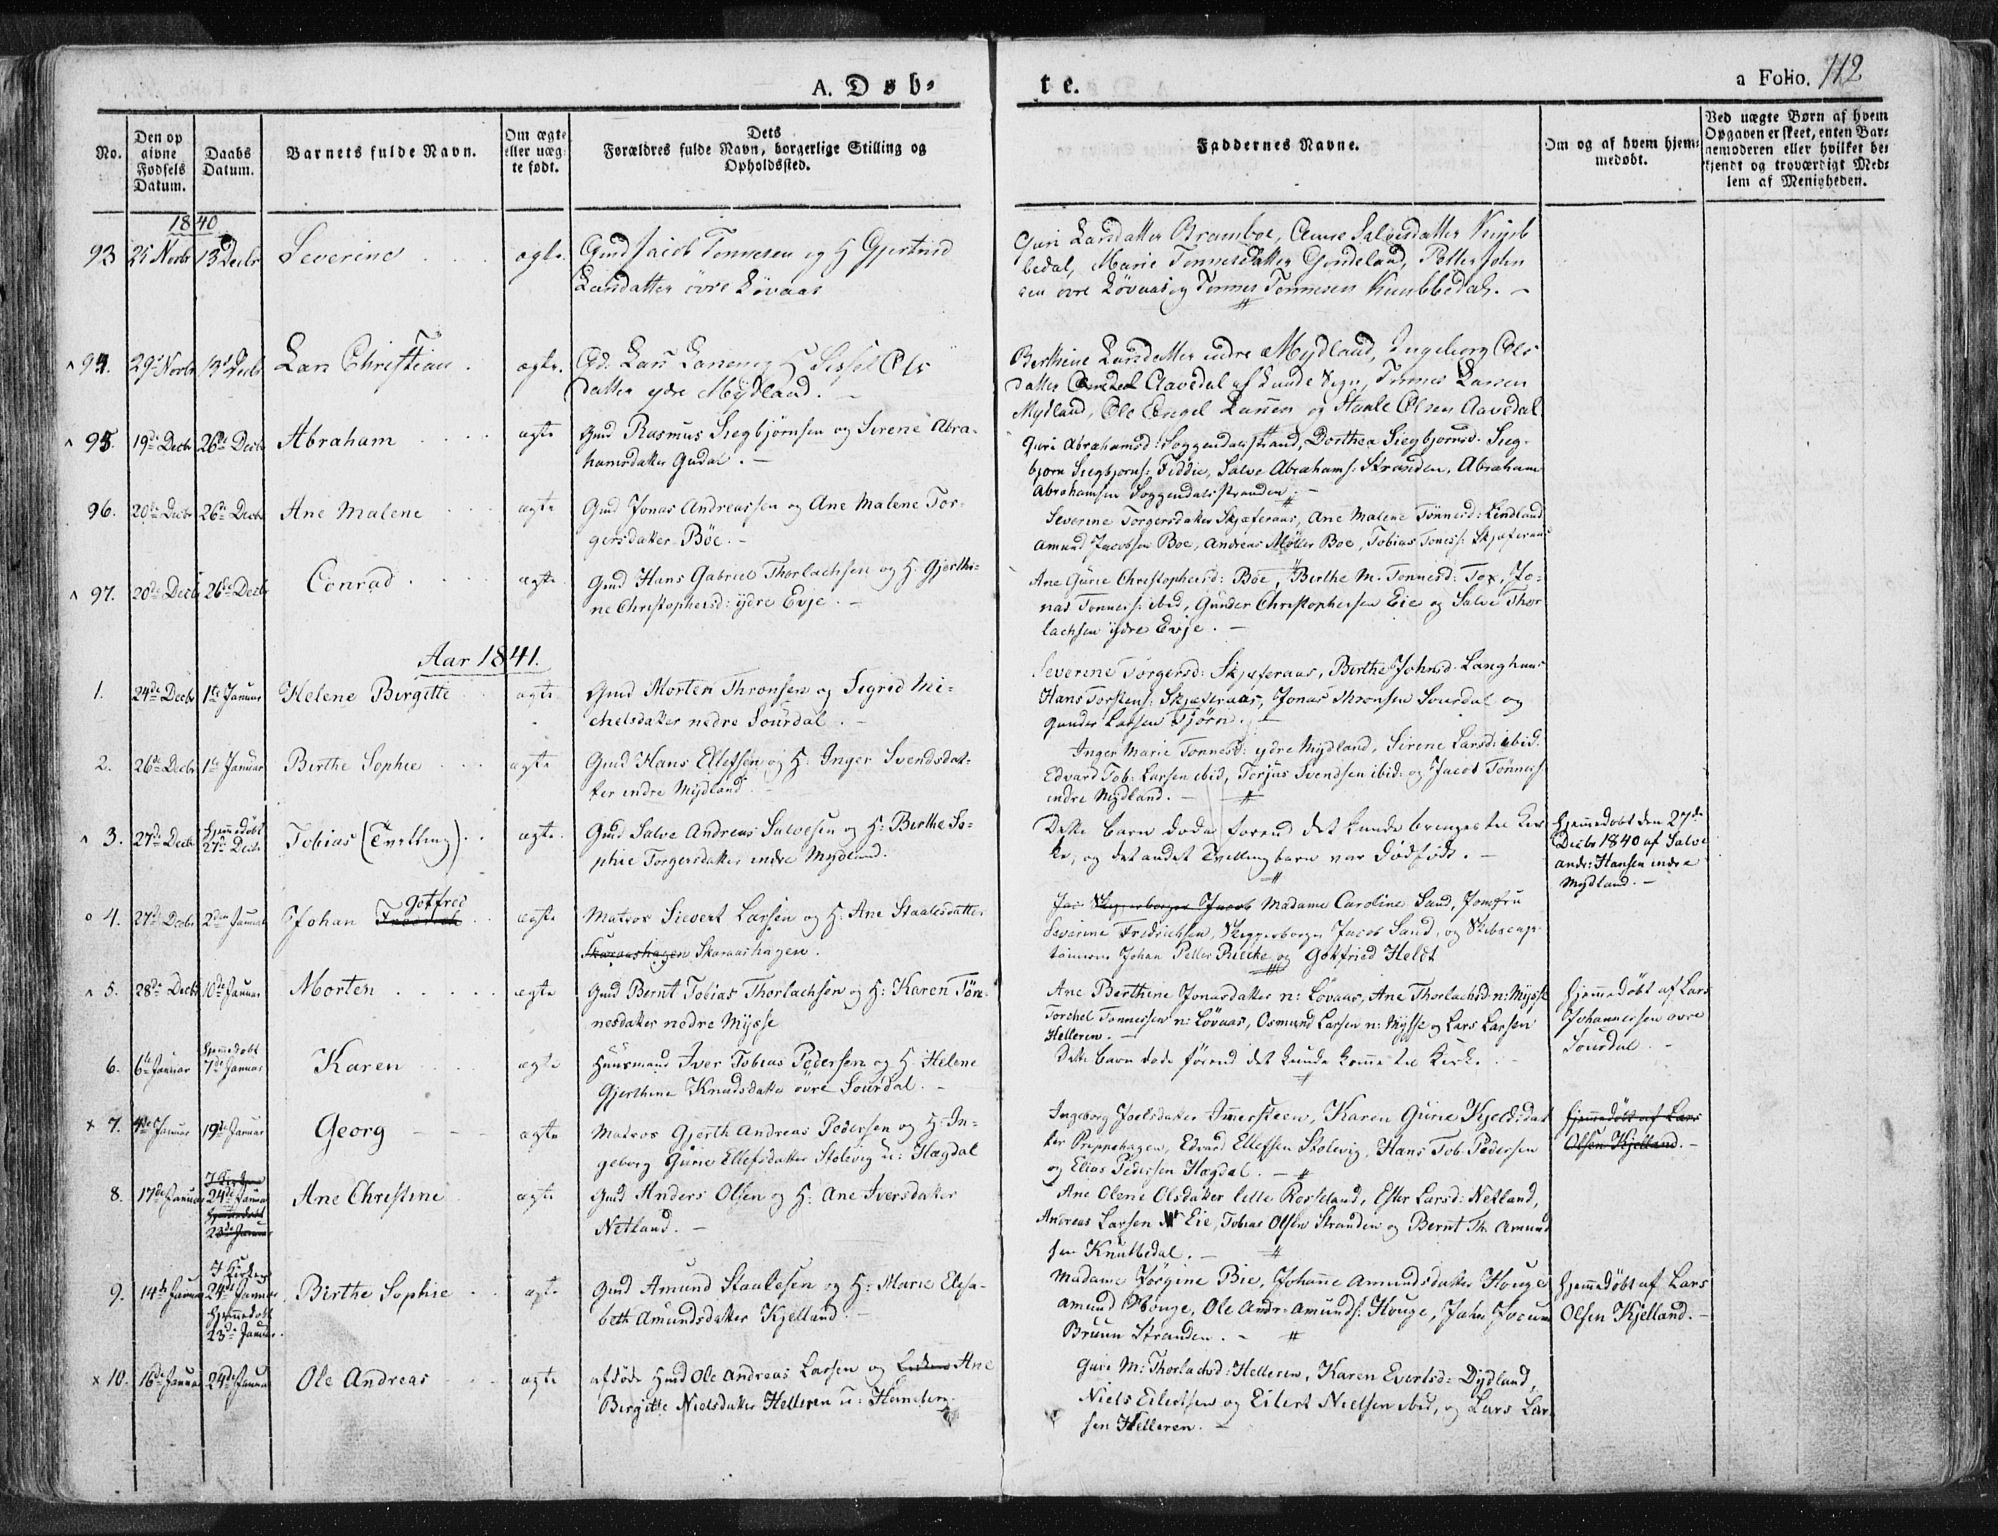 A. Døb-
te.
a Folio. 112
No.
Den op
givne
Fødsels
Datum.
Daabs
Datum.
Barnets fulde Navn.
Om ægte
eller uæg-
te født.
Dets
Forældres fulde Navn, borgerlige Stilling og
Opholdssted.
Faddernes Navne.
Om og af hvem hjem-
medøbt.
Ved uægte Børn af hvem
Opgaven er skeet, enten Bar-
nemoderen eller hvilket be-
kjendt og troværdigt Med-
lem af Menigheden.
1840
93 25 Novbr 13 Decbr Severine ægte. Gmd Jacob Tønnesen og H Gjertrud
Larsdatter övre Lövaas
Guri Larsdatter Bramboe, Salvesdatter
bedal, Marie Tonnesdatter, Petter John
sen övre Lövaas og Tønnes Tønnesen Knubbedal. -
94. 29 Novbr 13 Decbr Lars Christian ægte. Gd. Lars Larsen og H Sissel Ols
datter ydre Mydland. -
Berthine Larsdatter indre Mydland, Ingeborg Ols
datter Aavedal af Lunde Sogn, Tønnes Larsen
Mydland, Ole Engel Larsen og Staale Olsen Aavedal
95. 19de Decbr 26de Decbr Abraham ægte Gmd Rasmus Siegbjørnsen og Sirene Abra-
hamsdatter Gudal. -
Guri Abrahamsd: Soggendalsstrand, Dorthea Siegbjornsd. Sieg-
bjorn Siegbjorns: Fidtie, Salve Abrahams: Stranden, Abraham
Abrahamsen Soggendalsstranden. -
96. 20de Decbr 26de Decbr Ane Malene ægte Gmd Jonas Andreassen og Ane Malene Tor-
gersdatter Böe. -
Severine Torgersdatter Skjæferaas, Ane Malene Tønnesd: Lindland
Amund Jacobsen Boe, Andreas Møller Boe, Tobias Toness: Skjæferaas
97. 20de Decbr 26de Decbr Conrad ægte Gmd Hans Gabriel Thorlachsen og H. Gjerthi-
ne Christophersd: ijdre Evje. -
Ane Gurie Christophersd: Böe, Birthe M. Tonnesd: Tox, Jo-
nas Tonness: ibid, Gunder Christophersen Eie og Salve Thor
lachsen ijdre Evje. -
Aar 1841.
1. 24de Decbr 1te Januar Helene Birgitte ægte Gmd Morten Thronsen og Sigrid Mi-
chelsdatter nedre Sourdal. -
Severine Torgersd: Skjæferaas, Birthe Johnsd. Langhuus
Hans Torstens: Skjæferaas, Jonas Thronsen Sourdal og
Gunder Larsen Tjörn. -
2. 26de Decbr 1te Januar Birthe Sophie ægte Gmd Hans Ellefsen og H. Inger Svendsdat-
ter indre Mydland.
Inger Marie Tonnesd: ydre Mydland, Sirene Larsd: ibid.
Edvard Tob: Larsen ibid, Torjus Svendsen ibid. og Jacob Tönness
indre Mydland. -
3. 27de Decbr Hjemmedøbt 27de Decbr Tobias (Tvilling) ægte. Gmd Salve Andreas Salvesen og H: Birthe So-
phie Torgersdatter indre Mydland.
Dette barn døde forend det kunde bringes til Kir
ke, og det andet Tvillingbarn var Dödfödt. -
Hjemmedøbt den 27de
Decbr 1840 af Salve
Andr: Hansen indre
Mydland. -
4. 27de Decbr 2den Januar Johan Gotfred ægte Matros Sievert Larsen og H. Ane Staalesdatter
Skaraashagen Skaraashagen.
Jac Skipperborger Jacob Madame Caroline Sand, Jomfru
Severine Fredrichsen, Skipperborger Jacob Sand, og Skibscap-
tainerne Johan Peller Pulcke og Gottfried Heldt
5. 28de Decbr 10de Januar Morten ægte Gmd Bernt Tobias Thorlachsen og H: Karen Tön-
nesdatter nedre Mijsse
Ane Berthine Jonasdatter n: Lövaas, Ane Thorlachsd n: Mijsse
Torchel Tonnessen n: Lövaas, Osmund Larsen n: Mijsse og Lars Larsen
Helleren. -
Hjemmedøbt af Lars
Johannesen övre
Sourdal. -
6. 6te Januar Hjemedøbt 7de Januar Karen ægte Huusmand Iver Tobias Pedersen og H. Helene
Gjerthine Knudsdatter övre Sourdal. -
Dette barn døde førend det kunde komme til Kirke.
7. 4de Januar 19de Januar Georg ægte Matros Gjerth Andreas Pedersen og H. In-
geborg Gurie Ellefsdatter Stolevig u: Hægdal
Ingeborg Joelsdatter Immersteen, Karen Gurie Kjeldsdat
ter Preppehagen, Edvard Ellefsen Stolevig, Hans Tob: Pedersen
og Elias Pedersen Hægdal. -
Hjemmedöbt af Lars
Olsen Kjelland. -
8. 17de Januar I Kirken 24de Januar Hjemmedøbt 23de Januar Ane Christine ægte Gmd Anders Olsen og H. Ane Iversdatter
Netland. -
Ane Olene Olsdatter lille Rosseland, Ester Larsd: Netland,
Andreas Larsen Eie, Tobias Olsen Stranden og Bernt Th. Amund
sen Knubbedal. -
9. 14de Januar I Kirken 24de Januar Hjemmedøbt 23de Januar. Birthe Sophie ægte Gmd Amund Staalesen og H: Marie Elisa-
beth Amundsdatter Kjelland. -
Madame Jörgine Bie, Johanne Amundsdatter Houge
Amund Houge, Ole Andr: Amunds: Houge, Jahn Jocum
Bruun Stranden. -
Hjemmedöbt af Lars
Olsen Kjelland. -
10. 16de Januar 24de Januar Ole Andreas ægte afdöde Gmd Ole Andreas Larsen og Ane
Birgitte Nielsdatter Helleren u:
Guri M: Thorlachsd: Helleren, Karen Evertsd: Dydland,
Niels Eilertsen og Eilert Nielsen ibid, og Lars Lar
sen Helleren. -